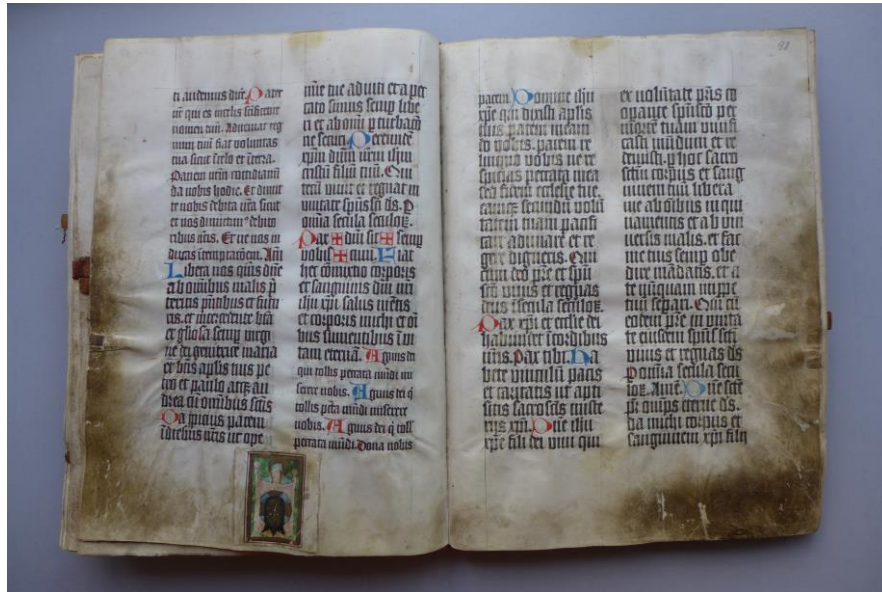 ti audemus dicẽ Pater
nr̃ qui es in celis scificetur
nomen tuũ. Adveniat reg
num tuũ fiat voluntas
tua sicut ĩ celo et ĩ terra.
Panem nr̃m cotidianũ
da nobis hodie. Et dimit
te nobis debita nr̃a sicut
et nos dimittimꝰ debito
ribus nr̃is. Et ne nos in
ducas ĩ temptacõem. Am̃
Libera nos q̃s dñe
ab omibus malis p̃
teritis p̃ntibus et futu
ris. et intercedente bt̃a
et gl̃iosa semp virgi
ne dei genitrice maria
et bt̃is apl̃is tuis pe
tro et paulo atqꝫ an
drea cũ omĩbus sc̃tis
Da ꝓpicius pacem
ĩ diebus nr̃is ut ope
mĩe tue adiuti et a pec
cato simus semp libe
ri et ab om̃i ꝑturbacõ
ne securi. Per eunde
xp̃m dñm nr̃m ih̃m
cristũ filiũ tuũ. Qui
tecũ vivit et regnat in
unitate sp̃us sc̃i ds̃. P
omnia secula seculoꝝ.
Pax ✠ dñi sit ✠ semp
vobis ✠ cum. Fiat
hec cõmixtio corporis
et sanguinis dñi nr̃i
ih̃u xp̃i salus mẽtis
et corporis michi et õ
bus sumentibus ĩ vi
tam eternã. Agnus dei
qui tollis peccata mũdi mi
serere nobis. Agnus dei q̃
tollis pc̃ta mũdi miserere
nobis. Agnus dei q̃ toll
peccata mũdi. Dona nobis
pacem. Domine ih̃u
xp̃e qui dixisti apl̃is
tuis pacem meam
do vobis. pacem re
linquo vobis ne re
spicias peccata mea
sed fidem ecclesie tue.
eamqꝫ secundũ volũ
tatem tuam pacifi
care adunare et re
gere digneris. Qui
cum deo pr̃e et sp̃u
sc̃o vivis et regnas
deus ĩ secula seculoꝝ.
Pax xp̃i et ecclie dei
habundet ĩ cordibus
nr̃is. Pax tibi. Ha
bete vinculũ pacis
et caritatis ut apti
sitis sacrosc̃is miste
riis xp̃i. Dñe ih̃u
xp̃e fili dei vivi qui
ex volũtate pr̃is co
opante sp̃usc̃o per
mortẽ tuam vivifi
casti mũdum et re
demisti. ꝑ hoc sacro
sc̃tũ corpus et sang
uinem tuũ libera
me ab oĩbus iniqui
tatibus et ab uni
versis malis. et fac
me tuis semp obe
dire mãdatis. et a
te nũquam in ꝑpe
tuũ separari. Qui cũ
eodem pr̃e in unita
te eiusdem sp̃us sc̃ti
vivis et regnas ds̃
P omnia secula secu
loꝝ. Ame. Dñe sc̃te
pr̃ om̃ps eterne ds̃.
da michi corpus et
sanguinem xp̃i filii